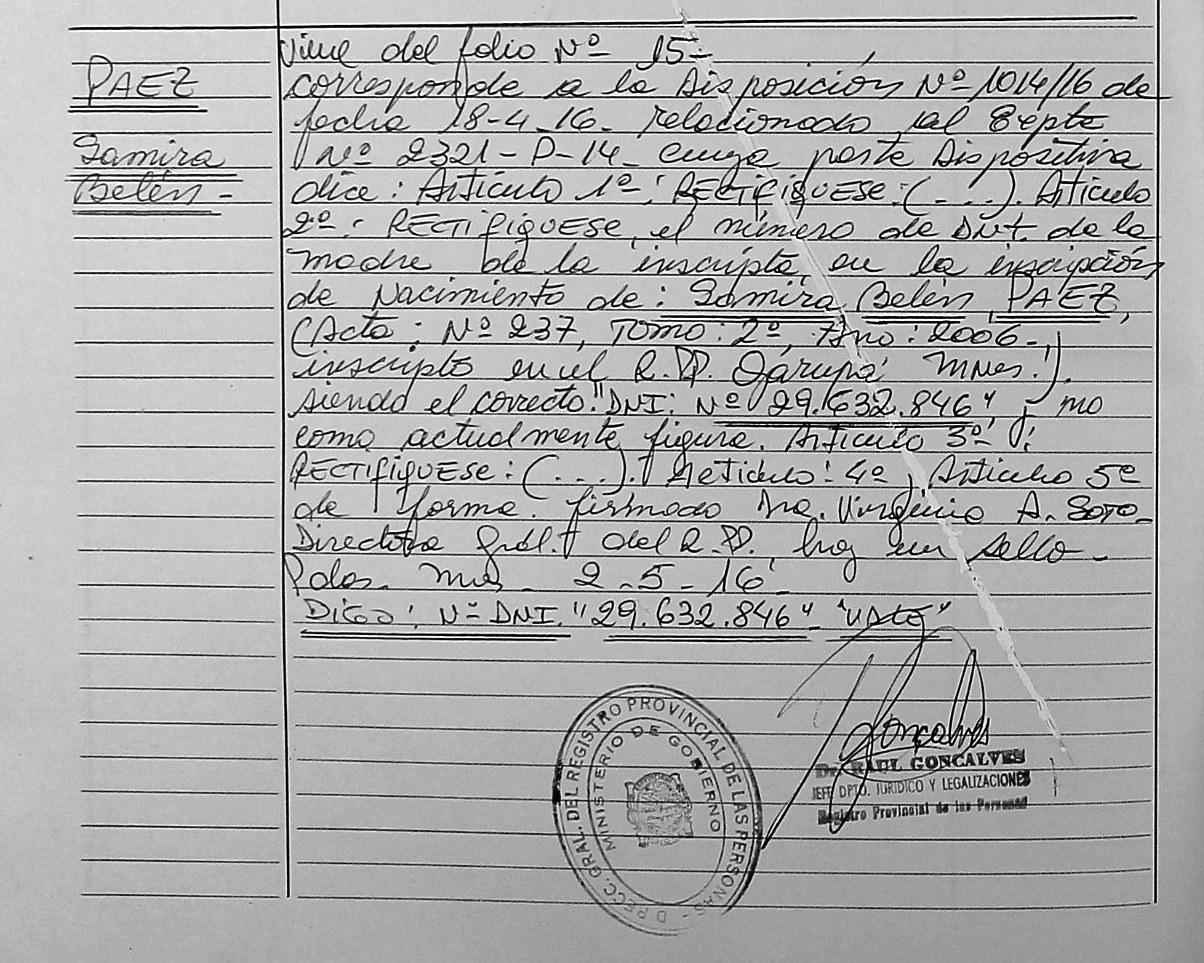 PAEZ
Samira
Belén -
Viene del folio Nº 15-
corresponde a la Disposición Nº 1014/16 de
fecha 18-4-16- relacionado al Expte
Nº 2321-P-14- cuya parte Dispositiva
dice: Artículo 1º: RECTIFIQUESE: (...). Artículo
2º: RECTIFIQUESE, el número de DNI. de la
madre de la inscripta, en la inscripción
de Nacimiento de: Samira Belén PAEZ,
(Acta: Nº 237, Tomo: 2º, Año: 2006-,
inscripto en el R.P. Garupá Mnes.).
siendo el correcto: "DNI: Nº 29.632.846", y no
como actualmente figura. Artículo 3º:
RECTIFIQUESE: (...). Artículo: 4º, Artículo 5º
de forma. firmado Dra. Virginia A. SOTO-
Directora Gral. del R.P. hay un sello-
Pdas. Mnes- 2-5-16-
DIGO: Nº DNI. "29.632.846"- "VALE"
Goncalves
Dr. RAUL GONCALVES
JEFE DPTO. JURIDICO Y LEGALIZACIONES
Registro Provincial de las Personas
DIRECC. GRAL. DEL REGISTRO PROVINCIAL DE LAS PERSONAS -
MINISTERIO DE GOBIERNO